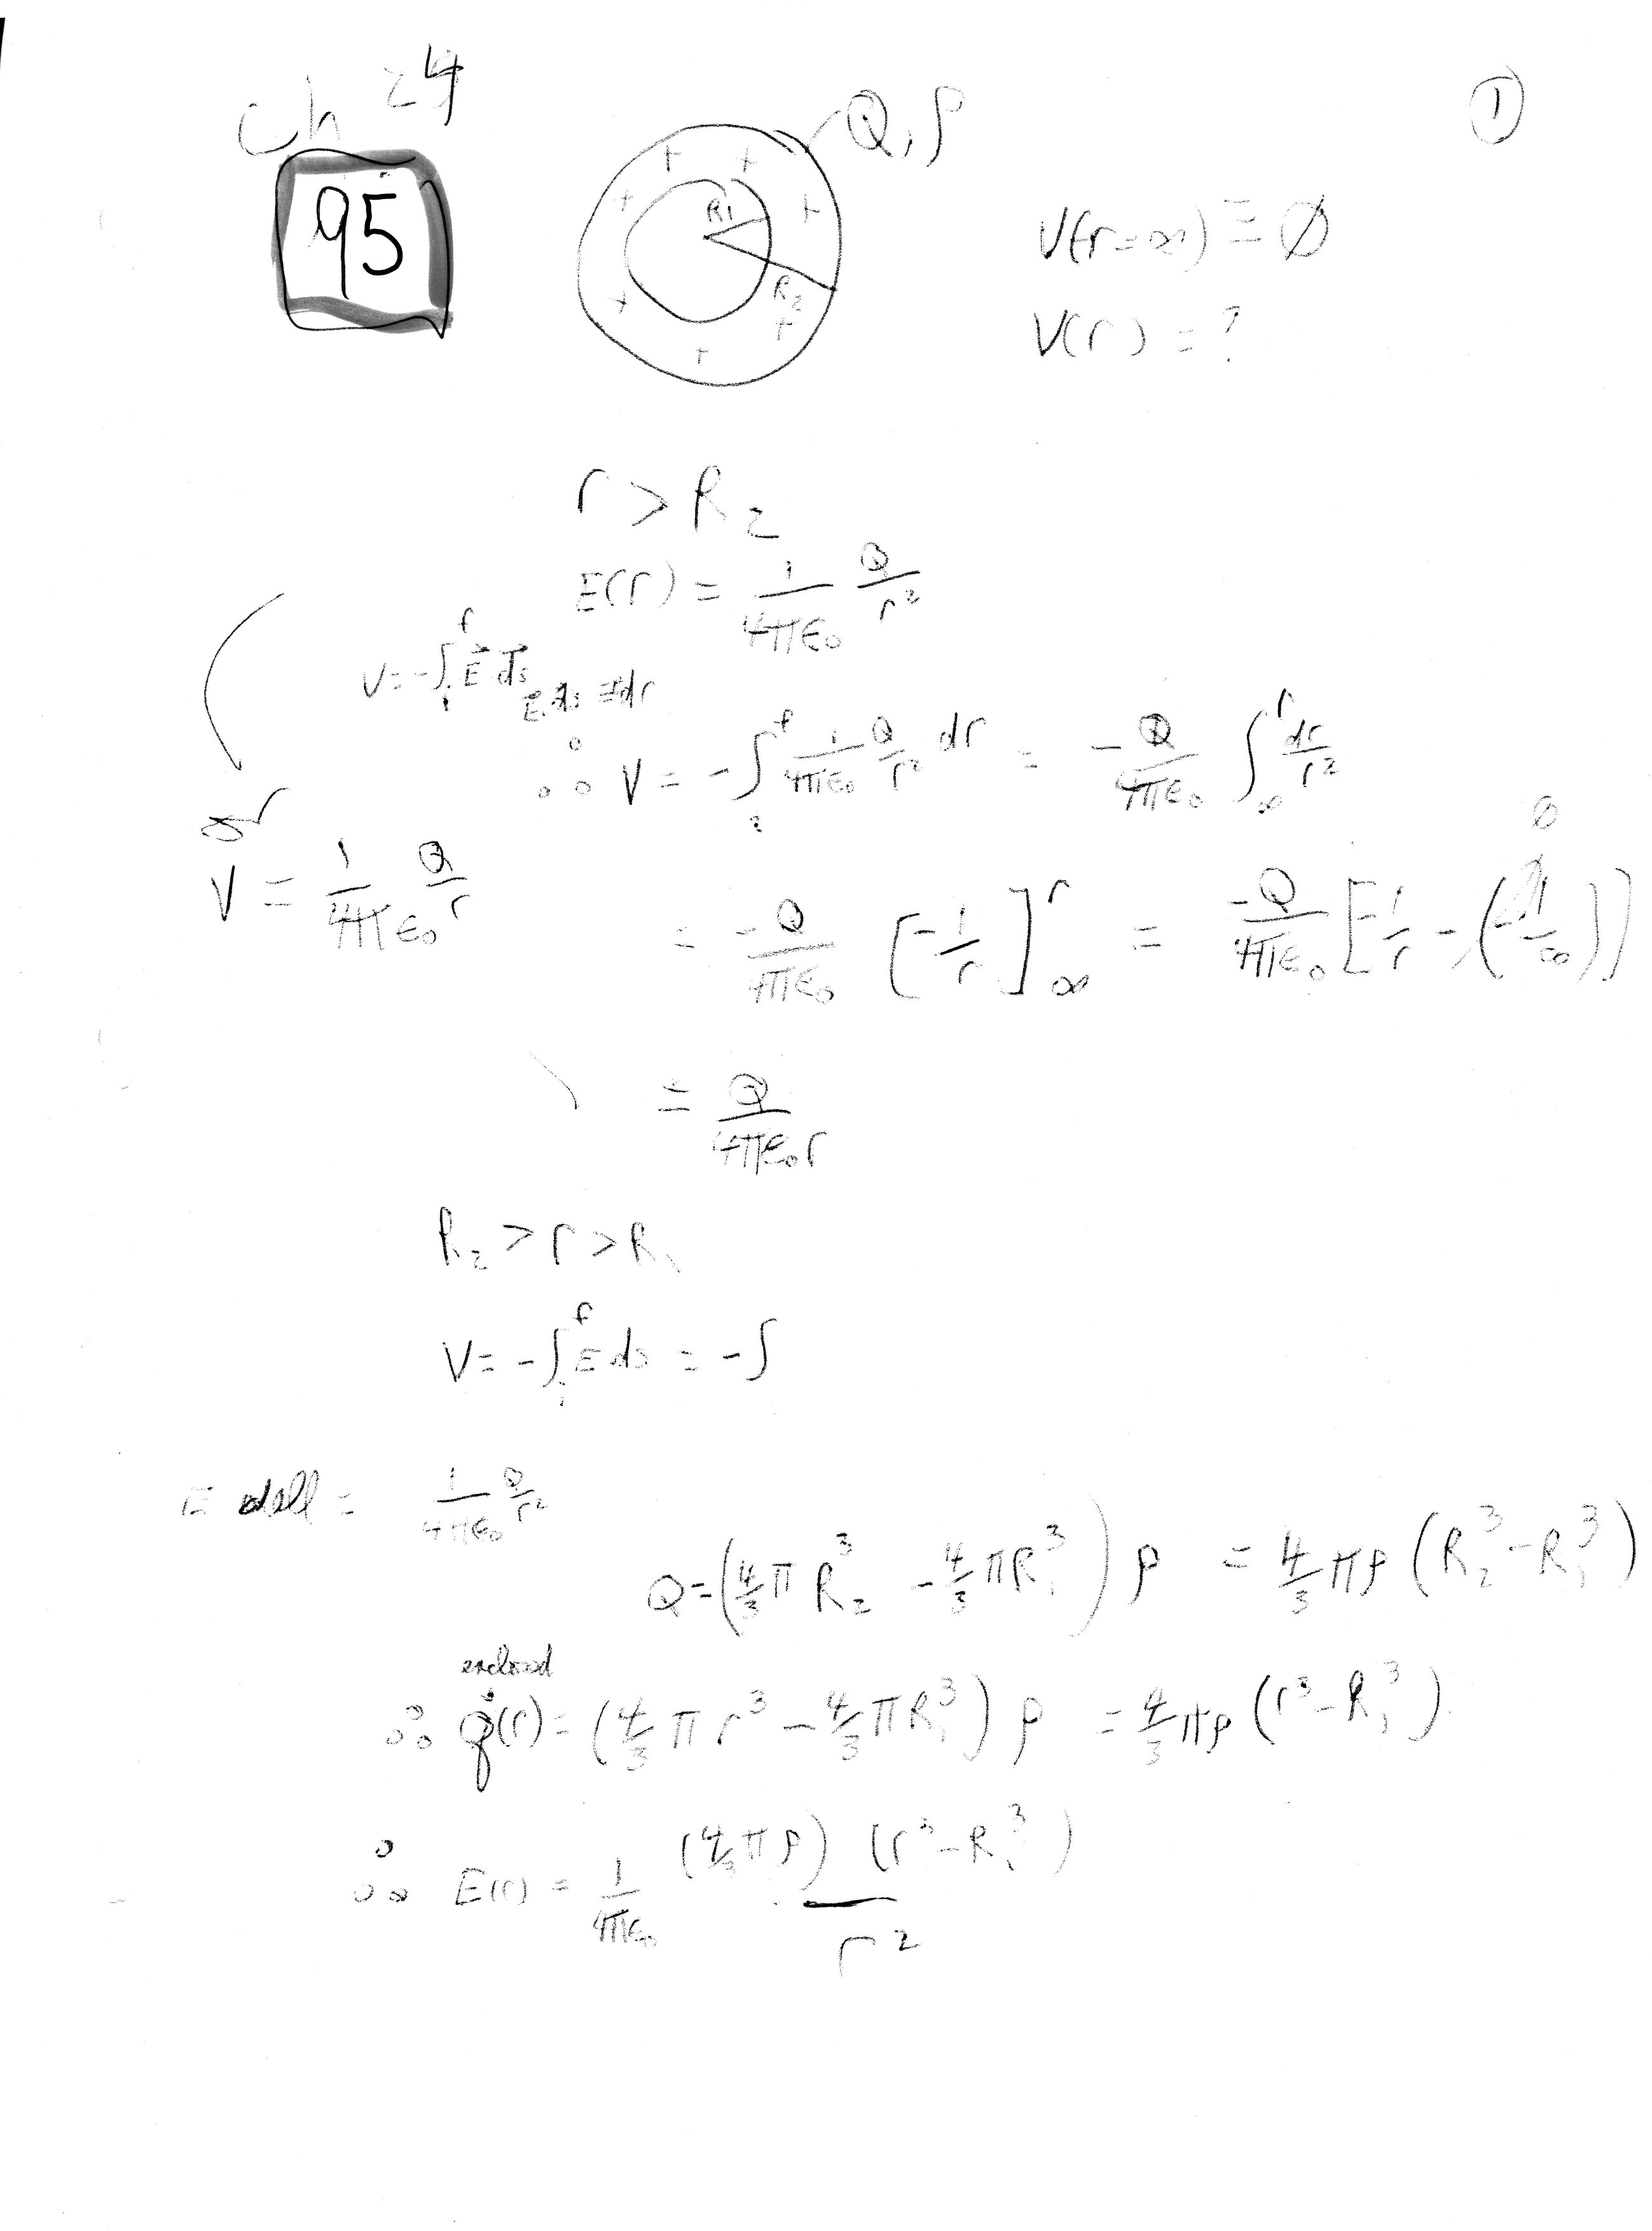 Ch 24
①
95
Q, ρ
R1
R2
V(r=∞) ≡ ∅
V(r) = ?
r > R2
E(r) = 1/4πε0 Q/r²
V = -∫ᵢᶠ E⃗ ds⃗
E⃗·ds⃗ = Edr
∴ V = -∫ᵢᶠ 1/4πε0 Q/r² dr = -Q/4πε0 ∫∞ʳ dr/r²
or
V = 1/4πε0 Q/r
= -Q/4πε0 [-1/r]∞ʳ = -Q/4πε0 [-1/r - (-1/∞)]
∅
= Q/4πε0r
R2 > r > R1
V = -∫ᵢᶠ E ds = -∫
= 1/4πε0 Q/r²
Q = (4/3 π R2³ - 4/3 πR1³) ρ = 4/3 πρ (R2³ - R1³)
enclosed
∴ q(r) = (4/3 π r³ - 4/3 πR1³) ρ = 4/3 πρ (r³ - R1³)
∴ E(r) = 1/4πε0 (4/3 πρ) (r³ - R1³)/r²